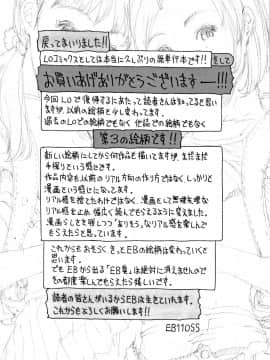 戻ってまいりました!!
LOコミックスとしては本当に久しぶりの単行本です!! そして
お買いあげありがとうございますー!!!
今回LOで復帰するにあたって読者さんは知ってると思い
ますが、以前の絵柄を少し変わってます。
過去のLOでの絵柄でもなく 他誌での絵柄でもなく
第3の絵柄です!!
新しい絵柄にしてから何作品も描いてますが、まだまだ
手探りという感じです。
作品内容も以前のリアル方向の作りではなく しっかりと
漫画という感じになってます。
リアル感を捨てたわけではなく、漫画として無理矢理な
リアル感を止め 幅広く読んでもらえるように変えました。
漫画らしさを残しつつ「ありそう」なリアル感を楽しんで
もらえたらと思っています。
これからもおそらく きっとEBの絵柄は変わっていくと
思います。
でも EBから出る「EB臭」は絶対に消えませんので
その都度 楽しんでもらえたら嬉しいです。
読者の皆さんがいるからEBは生きていれます。
これからもよろしくお願いします!!
EB110SS